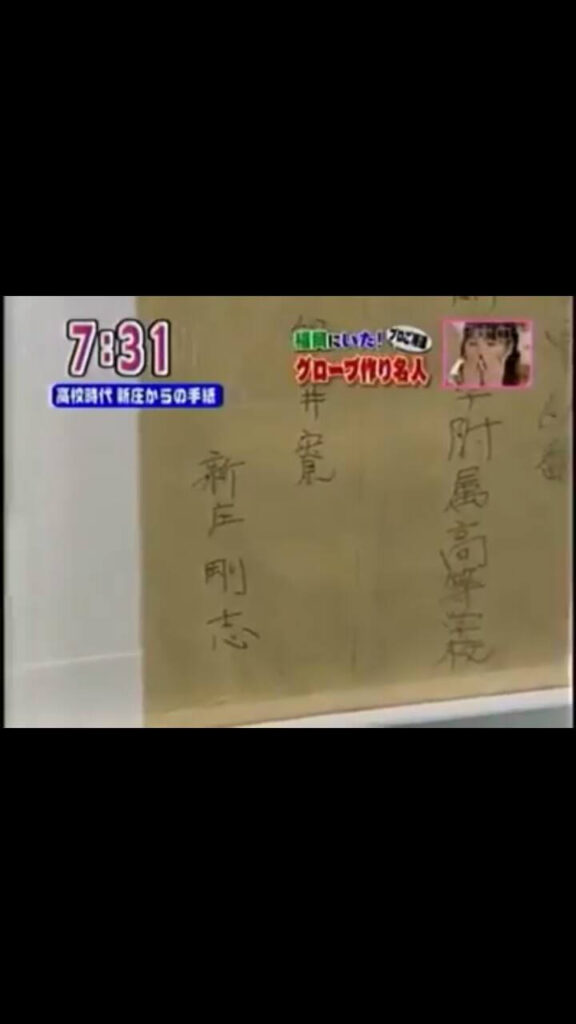 7:31
高校時代 新庄からの手紙
福岡にいた!
プロご用達
グローブ作り名人
附属高等学校
井寛
新庄剛志